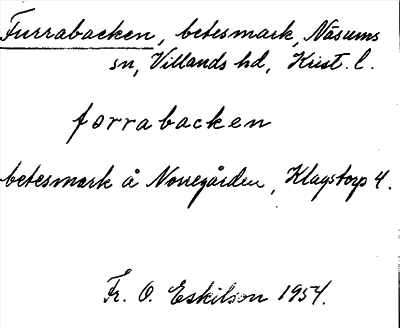 Furrabacken, betesmark, Näsums
sn, Villands hd, Krist. l.
forrabacken
betesmark å Norregården, Klagstorp 4.
Fr. O. Eskilson 1954.